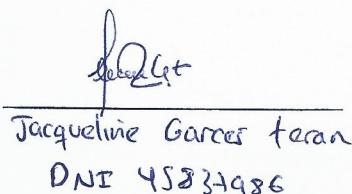 Jacqueline Garces teran
DNI 45837986